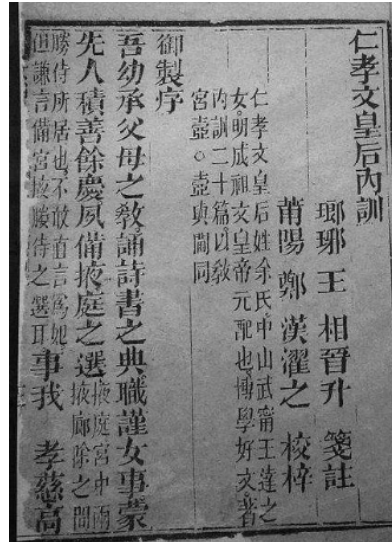 仁孝文皇后內訓
瑯琊 王 相晉升 箋註
莆陽 鄭 漢濯之 校梓
仁孝文皇后姓余氏中山武甯王達之
女明成祖文皇帝元配也博學好文著
內訓二十篇以教
宮壼○壼與閫同
御製序
吾幼承父母之教誦詩書之典職謹女事蒙
先人積善餘慶夙備掖庭之選掖庭宮中兩掖廊除之間
媵侍所居也不敢直言爲妃但謙言備宮掖媵侍之選耳事我 孝慈高